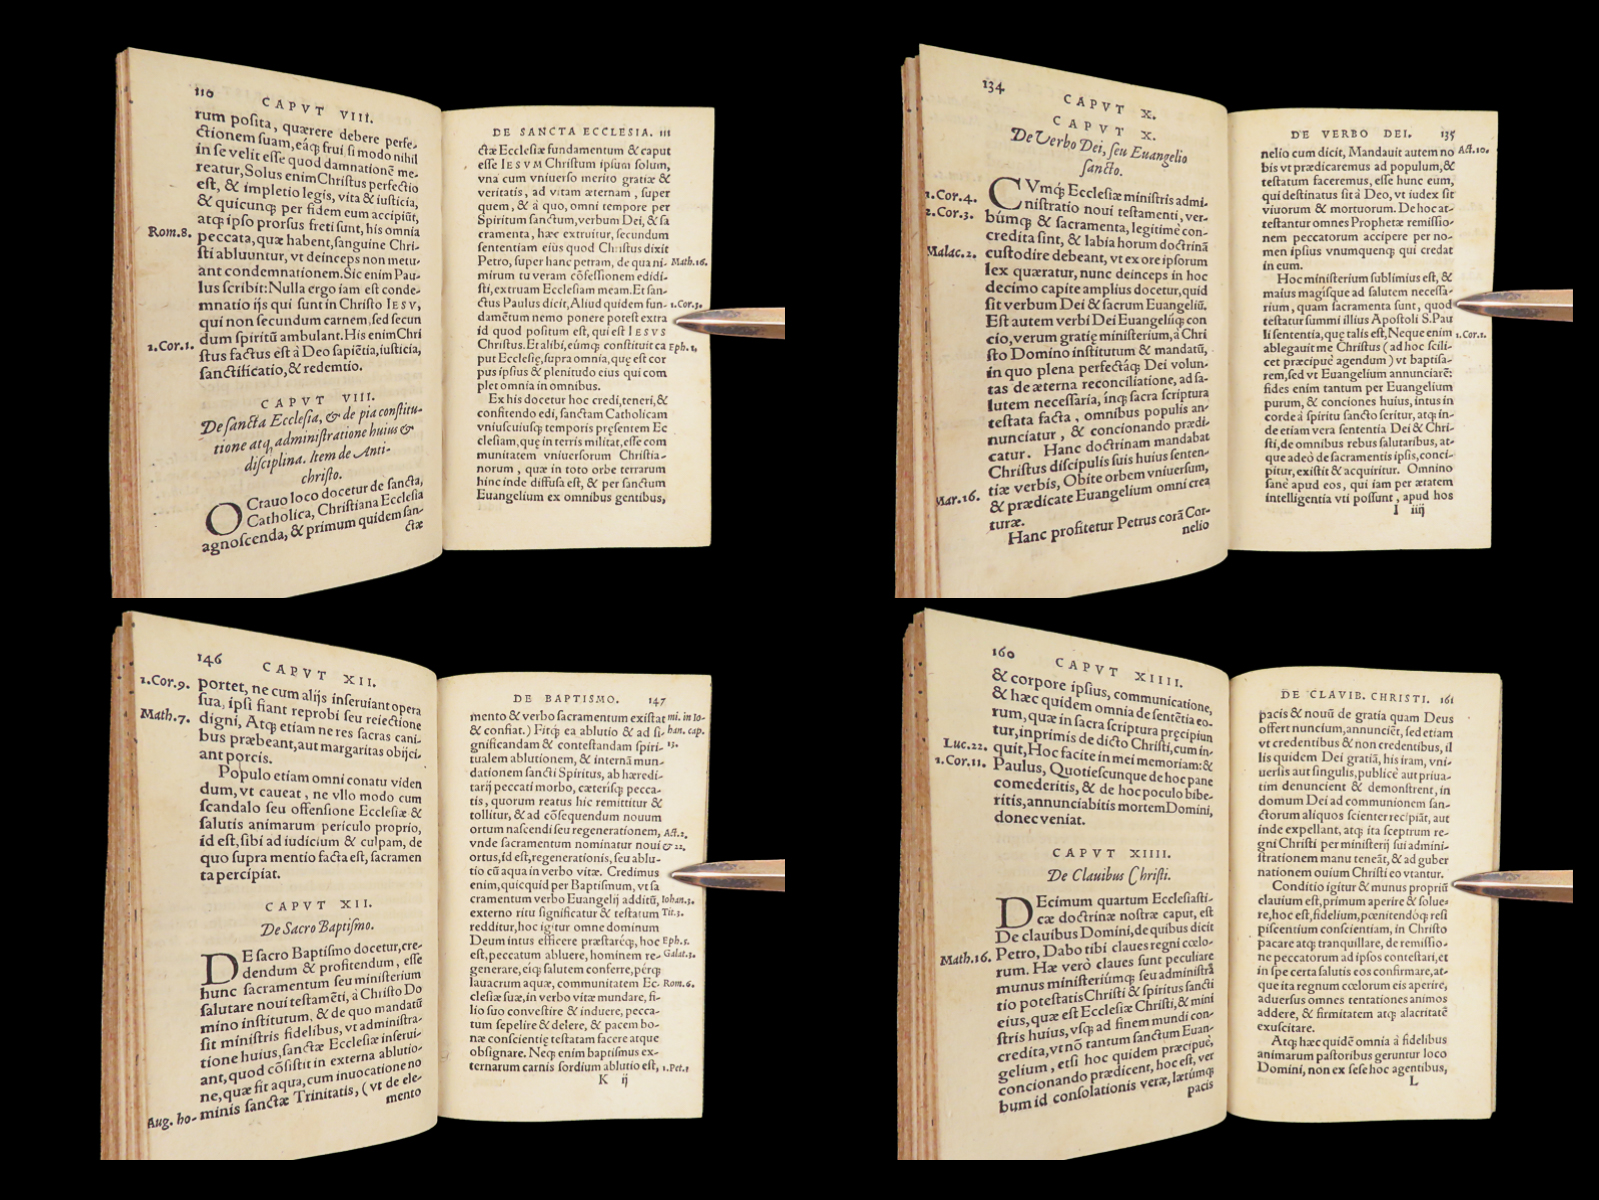 110 CAPVT VIII.
rum posita, quærere debere perfe-
ctionem suam, eáq; frui, si modo nihil
in se velit esse quod damnationē me-
reatur, Solus enim Christus perfectio
est, & impletio legis, vita & iusticia,
& quicunq; per fidem eum accipiūt,
atq; ipso prorsus freti sunt, his omnia
Rom.8. peccata, quæ habent, sanguine Chri-
sti abluuntur, vt deinceps non metu-
ant condemnationem. Sic enim Pau-
lus scribit: Nulla ergo iam est conde-
mnatio ijs qui sunt in Christo IESV,
qui non secundum carnem, sed secun
dum spiritū ambulant. His enim Chri
1.Cor.1. stus factus est à Deo sapiētia, iusticia,
sanctificatio, & redemtio.
CAPVT VIII.
De sancta Ecclesia, & de pia constitu-
tione atq; administratione huius &
disciplina. Item de Anti-
christo.
OCtauo loco docetur de sancta,
Catholica, Christiana Ecclesia
agnoscenda, & primum quidem san-
ctæ
DE SANCTA ECCLESIA. 111
ctæ Ecclesiæ fundamentum & caput
esse IESVM Christum ipsum solum,
vna cum vniuerso merito gratiæ &
veritatis, ad vitam æternam, super
quem, & à quo, omni tempore per
Spiritum sanctum, verbum Dei, & sa
cramenta, hæc extruitur, secundum
sententiam eius quod Christus dixit
Petro, super hanc petram, de qua ni- Math.16.
mirum tu veram cōfessionem edidi-
sti, extruam Ecclesiam meam. Et san-
ctus Paulus dicit, Aliud quidem fun- 1.Cor.3.
damētum nemo ponere potest extra
id quod positum est, qui est IESVS
Christus. Et alibi, eúmq; constituit ca Eph.1.
put Ecclesię, supra omnia, quę est cor
pus ipsius & plenitudo eius qui com
plet omnia in omnibus.
Ex his docetur hoc credi, teneri, &
confitendo edi, sanctam Catholicam
vniuscuiusq; temporis pręsentem Ec
clesiam, quę in terris militat, esse com
munitatem vniuersorum Christia-
norum, quæ in toto orbe terrarum
hinc inde diffusa est, & per sanctum
Euangelium ex omnibus gentibus,
134 CAPVT X.
CAPVT X.
De Verbo Dei, seu Euangelio
sancto.
1.Cor.4. CVmq; Ecclesiæ ministris admi-
2.Cor.3. nistratio noui testamenti, ver-
búmq; & sacramenta, legitimè con-
credita sint, & labia horum doctrinā
Malac.2. custodire debeant, vt ex ore ipsorum
lex quæratur, nunc deinceps in hoc
decimo capite amplius docetur, quid
sit verbum Dei & sacrum Euangeliū.
Est autem verbi Dei Euangelijq; con
cio, verum gratię ministerium, à Chri
sto Domino institutum & mandatū,
in quo plena perfectáq; Dei volun-
tas de æterna reconciliatione, ad sa-
lutem necessaria, inq; sacra scriptura
testata facta, omnibus populis an-
nunciatur, & concionando prædi-
catur. Hanc doctrinam mandabat
Christus discipulis suis huius senten-
tiæ verbis, Obite orbem vniuersum,
Mar.16. & prædicate Euangelium omni crea
turæ.
Hanc profitetur Petrus corā Cor-
nelio
DE VERBO DEI. 135
nelio cum dicit, Mandauit autem no Act.10.
bis vt prædicaremus ad populum, &
testatum faceremus, esse hunc eum,
qui destinatus sit à Deo, vt iudex sit
viuorum & mortuorum. De hoc at-
testantur omnes Prophetæ remissio-
nem peccatorum accipere per no-
men ipsius vnumquenq; qui credat
in eum.
Hoc ministerium sublimius est, &
maius magisque ad salutem necessa-
rium, quam sacramenta sunt, quod
testatur summi illius Apostoli S. Pau
li sententia, quę talis est, Neque enim 1.Cor.1.
ablegauit me Christus (ad hoc scili-
cet præcipuè agendum) vt baptisa-
rem, sed vt Euangelium annunciarē:
fides enim tantum per Euangelium
purum, & conciones huius, intus in
corde à spiritu sancto seritur, atq; in-
de etiam vera sententia Dei & Chri-
sti, de omnibus rebus salutaribus, at-
que adeò de sacramentis ipsis, conci-
pitur, existit & acquiritur. Omnino
sanè apud eos, qui iam per ætatem
intelligentia vti possunt, apud hos
I iiij
146 CAPVT XII.
1.Cor.9. portet, ne cum alijs inseruiant opera
sua, ipsi fiant reprobi seu reiectione
Math.7. digni, Atq; etiam ne res sacras cani-
bus præbeant, aut margaritas obijci-
ant porcis.
Populo etiam omni conatu viden
dum, vt caueat, ne vllo modo cum
scandalo seu offensione Ecclesiæ &
salutis animarum periculo proprio,
id est, sibi ad iudicium & culpam, de
quo supra mentio facta est, sacramen
ta percipiat.
CAPVT XII.
De Sacro Baptismo.
DE sacro Baptismo docetur, cre-
dendum & profitendum, esse
hunc sacramentum seu ministerium
salutare noui testamēti, à Christo Do
mino institutum, & de quo mandatū
sit ministris fidelibus, vt administra-
tione huius, sanctæ Ecclesiæ inserui-
ant, quod cōsistit in externa ablutio-
ne, quæ fit aqua, cum inuocatione no
Aug. ho- minis sanctæ Trinitatis, (vt de ele-
mento
DE BAPTISMO. 147
mento & verbo sacramentum existat mi. in Io-
& confiat.) Fitq; ea ablutio & ad si- han. cap.
gnificandam & contestandam spiri- 13.
tualem ablutionem, & internā mun-
dationem sancti Spiritus, ab hæredi-
tarij peccati morbo, cæterisq; pecca-
tis, quorum reatus hic remittitur &
tollitur, & ad cōsequendum nouum
ortum nascendi seu regenerationem, Act.2.
vnde sacramentum nominatur noui & 22.
ortus, id est, regenerationis, seu ablu-
tio cū aqua in verbo vitæ. Credimus
enim, quicquid per Baptismum, vt sa
cramentum verbo Euangelij additū, Iohan.3.
externo ritu significatur & testatum Tit.3.
redditur, hoc igitur omne dominum
Deum intus efficere præstaréq;, hoc Eph.5.
est, peccatum abluere, hominem re- Galat.3.
generare, eiq; salutem conferre, pérq;
lauacrum aquæ, communitatem Ec- Rom.6.
clesiæ suæ, in verbo vitæ mundare, fi-
lio suo conuestire & induere, pecca-
tum sepelire & delere, & pacem bo-
næ conscientię testatam facere atque
obsignare. Neq; enim baptismus ex-
ternarum carnis sordium ablutio est, 1.Pet.3
K ij
160 CAPVT XIIII.
& corpore ipsius, communicatione,
& hæc quidem omnia de sentētia eo-
rum, quæ in sacra scriptura pręcipiun
tur, inprimis de dicto Christi, cum in-
Luc.22. quit, Hoc facite in mei memoriam: &
1.Cor.11. Paulus, Quotiescunque de hoc pane
comederitis, & de hoc poculo bibe-
ritis, annunciabitis mortem Domini,
donec veniat.
CAPVT XIIII.
De Clauibus Christi.
DEcimum quartum Ecclesiasti-
cæ doctrinæ nostræ caput, est
De clauibus Domini, de quibus dicit
Math.16. Petro, Dabo tibi claues regni cœlo-
rum. Hæ verò claues sunt peculiare
munus ministeriúmq; seu administra
tio potestatis Christi & spiritus sancti
eius, quæ est Ecclesiæ Christi, & mini
stris huius, vsq; ad finem mundi con-
credita, vt nō tantum sanctum Euan-
gelium, etsi hoc quidem præcipuè,
concionando prædicent, hoc est, ver
bum id consolationis veræ, lætúmq;
pacis
DE CLAVIB. CHRISTI. 161
pacis & nouū de gratia quam Deus
offert nuncium, annunciēt, sed etiam
vt credentibus & non credentibus, il
lis quidem Dei gratiā, his iram, vni-
uersis aut singulis, publicè aut priua-
tim denuncient & demonstrent, in
domum Dei ad communionem san-
ctorum aliquos scienter recipiāt, aut
inde expellant, atq; ita sceptrum re-
gni Christi per ministerij sui admini-
strationem manu teneāt, & ad guber
nationem ouium Christi eo vtantur.
Conditio igitur & munus propriū
clauium est, primum aperire & solue-
re, hoc est, fidelium, pœnitendóq; resi
piscentium conscientiam, in Christo
pacare atq; tranquillare, de remissio-
ne peccatorum ad ipsos contestari, et
in spe certa salutis eos confirmare, at-
que ita regnum cœlorum eis aperire,
aduersus omnes tentationes animos
addere, & firmitatem atq; alacritatē
exuscitare.
Atq; hæc quidē omnia à fidelibus
animarum pastoribus geruntur loco
Domini, non ex sese hoc agentibus,
L